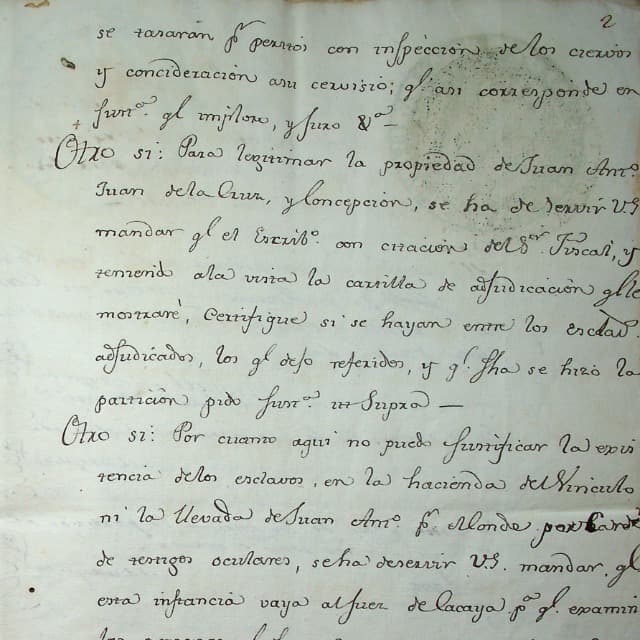 2
se tasarán pr. peritos con inspección de los ciervos
y concideración asu cervisio; ql. asi corresponde en
Just.ª ql imploro, y juro &ª —
Otro si: Para legitimar la propiedad de Juan Ant.º
Juan de la Cruz, y Concepción, se ha de servir V.S
mandar ql el Escrib.º con citación del S.or Fiscal, y
teniend ala vista la cartilla de adjudicación ql le
mostraré, Certifique si se hayan entre los esclav.
adjudicados, los ql dejo referidos, y ql. fha se hizo la
partición pido Just.ª ut Supra —
Otro si: Por cuanto aqui no puedo justificar la exis
tencia de los esclavos, en la hacienda del Vinculo
ni la llevada de Juan Ant.º pr. el Conde, por
de testigos oculares, se ha deservir V.S. mandar. ql
esta instancia vaya al Juez de Cacaya pª ql. examin